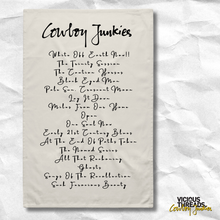 Cowboy Junkies
Whites Off Earth Now!!
The Trinity Session
The Caution Horses
Black Eyed Man
Pale Sun Crescent Moon
Lay It Down
Miles From Our Home
Open
One Soul Now
Early 21st Century Blues
At The End Of Paths Taken
The Nomad Series
All That Reckoning
Ghosts
Songs Of The Recollection
Such Ferocious Beauty
VICIOUS
THREADS.
Cowboy Junkies